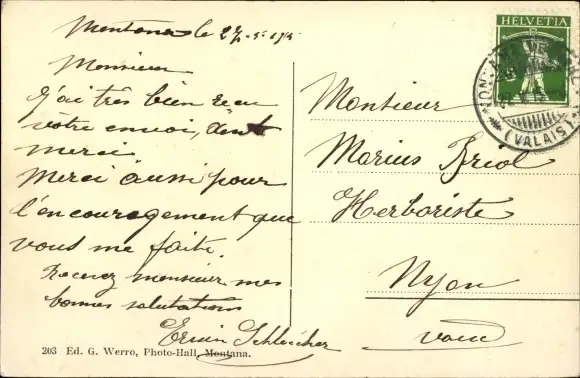 Montana le 27.
Monsieur
J'ai très bien reçu
vôtre envoi, dont
merci
Merci aussi pour
l'encouragement que
vous me faite.
Recevez monsieur mes
bonnes salutations
Erwin Schleicher
203 Ed. G. Werro, Photo-Hall, Montana.
HELVETIA
(VALAIS)
Monsieur
Marius Briol
Herboriste
Nyon
Vaud